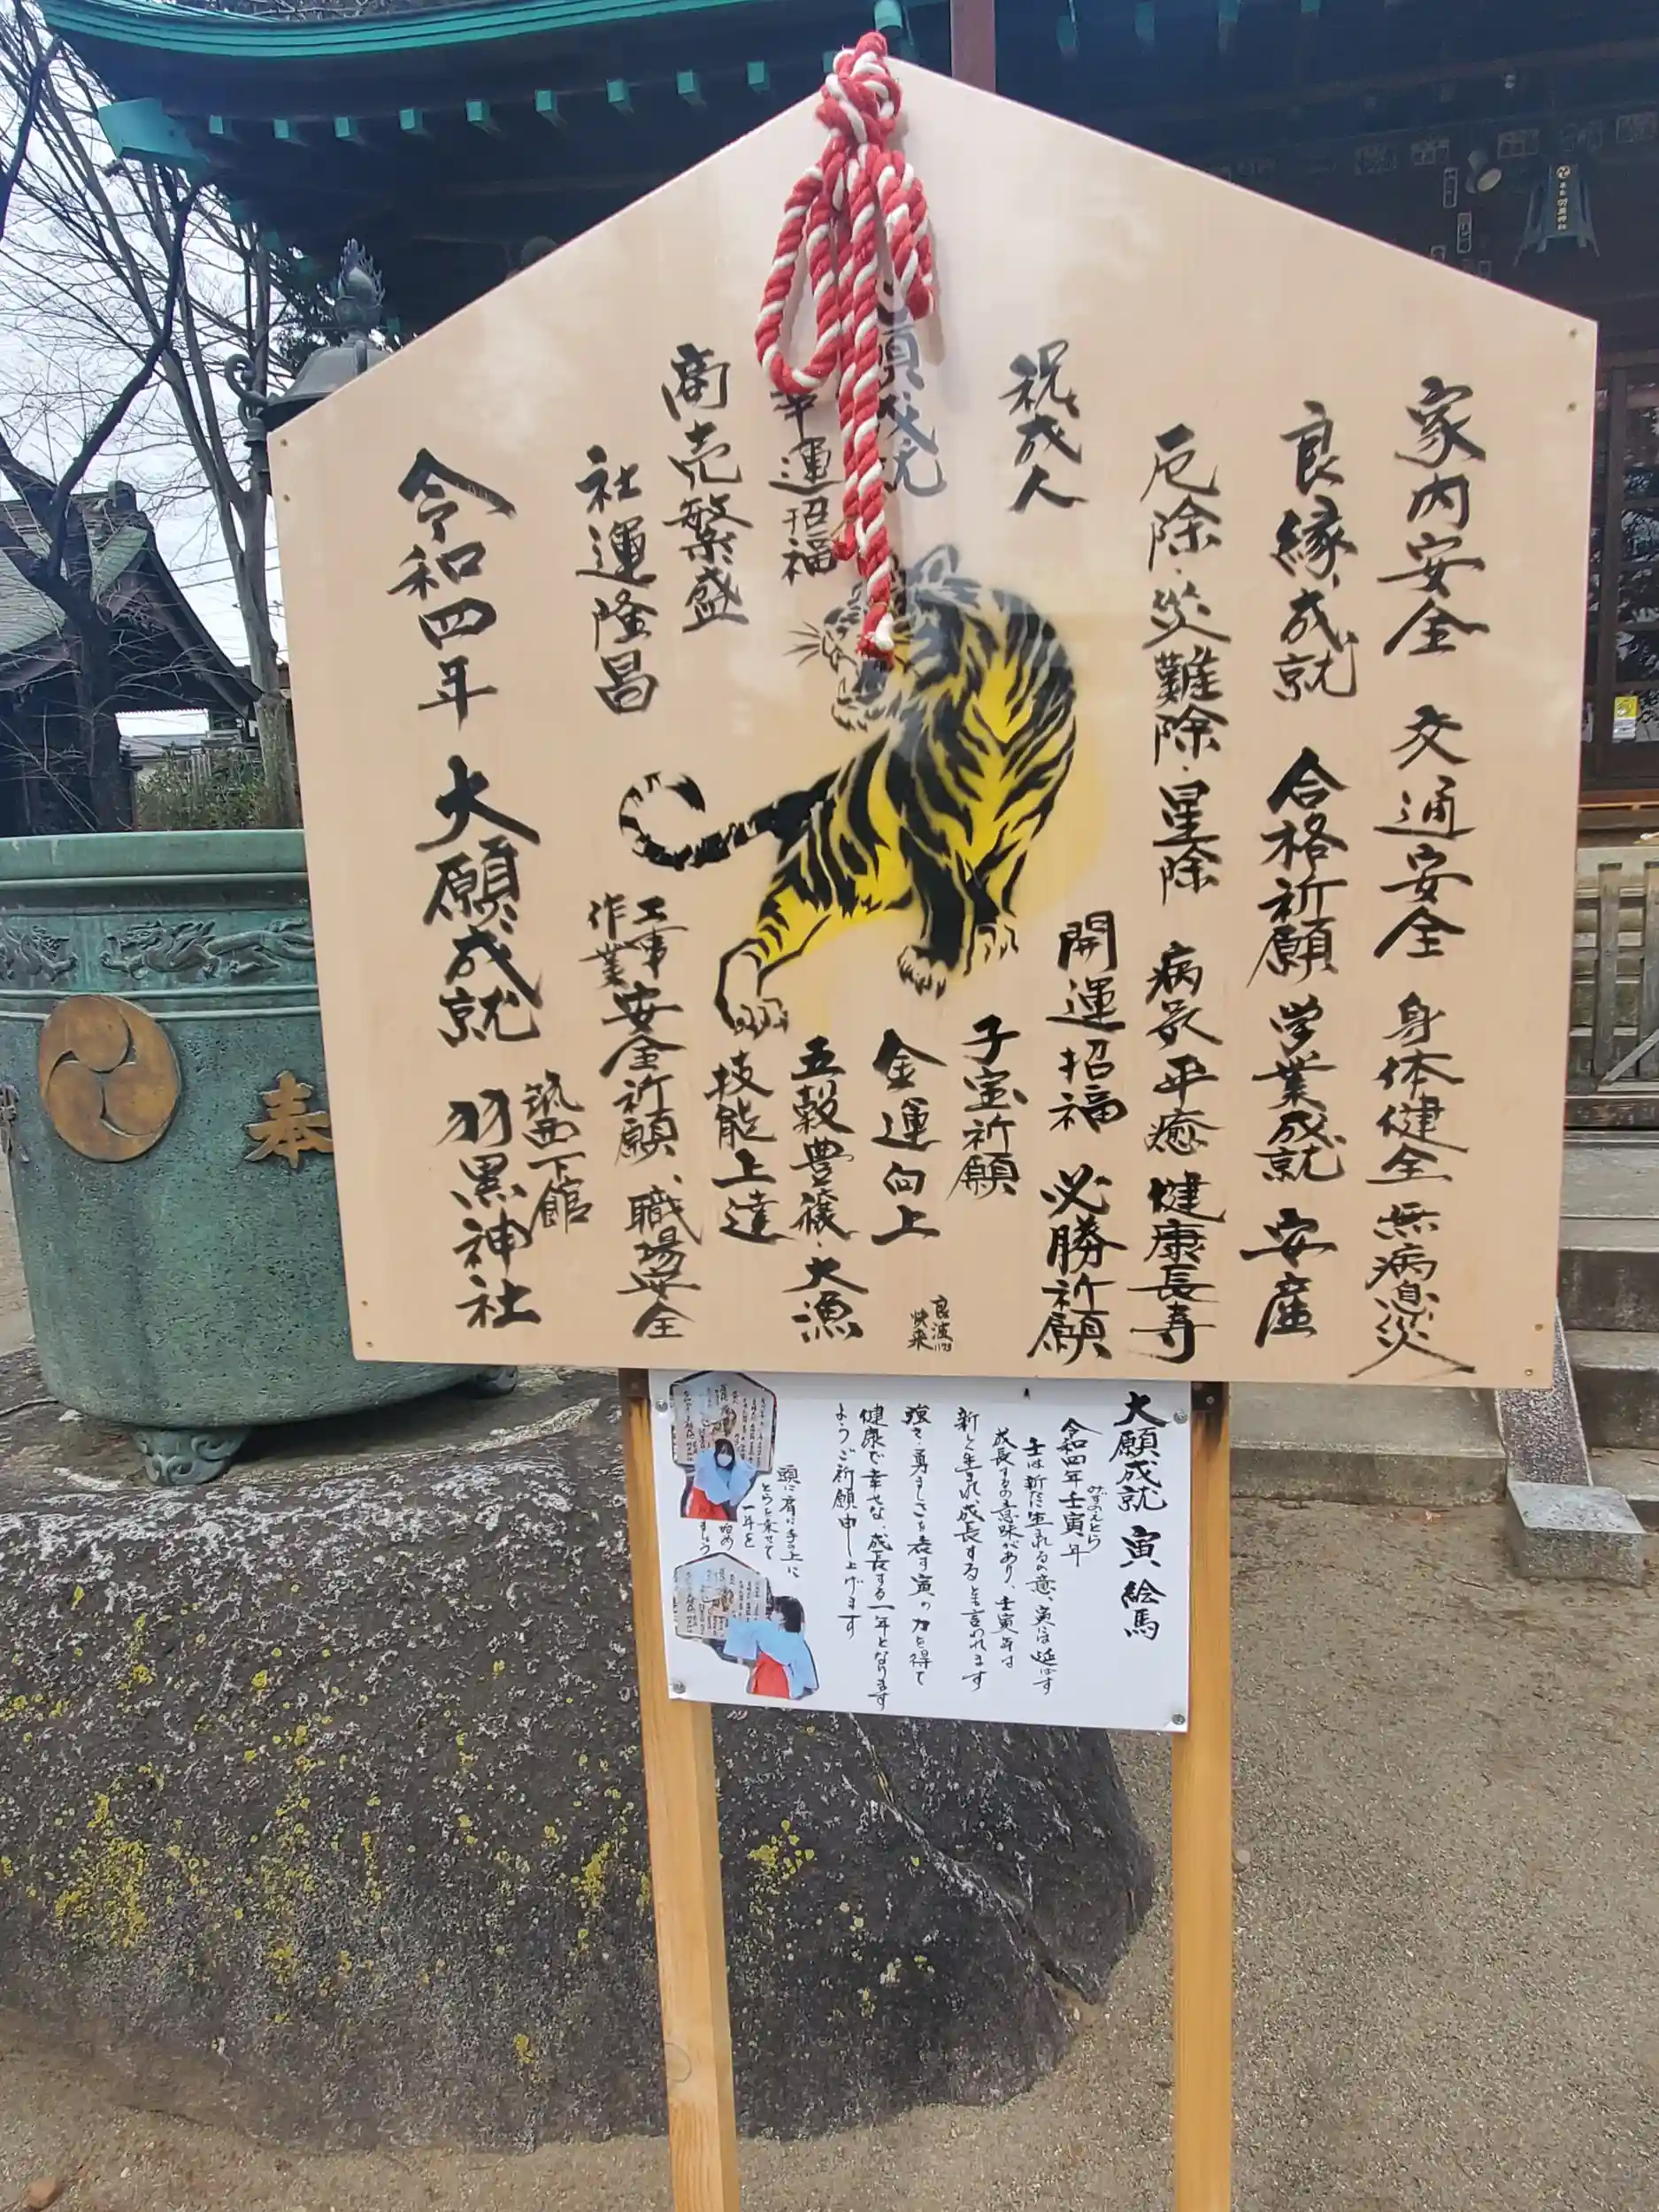 家内安全 交通安全 身体健全 無病息災
良縁成就 合格祈願 学業成就 安産
厄除・災難除・星除 病気平癒 健康長寿
祝成人
開運招福 必勝祈願
子宝祈願
金運向上
幸運招福
五穀豊穣・大漁
技能上達
商売繁盛
社運隆昌
工事
作業
安全祈願、職場安全
令和四年 大願成就
筑西下館
羽黒神社
良波
快来
奉
大願成就 寅絵馬
令和四年壬寅年
みずのえとら
壬は新たに生れるの意、寅は延ばす
成長するの意味があり、壬寅年は
新しく生まれ成長すると言われます
強さ・勇ましさを表す寅の力を得て
健康で幸せな、成長する一年となります
ようご祈願申し上げます
頭に肩に手の上に
とらを乗せて
一年を